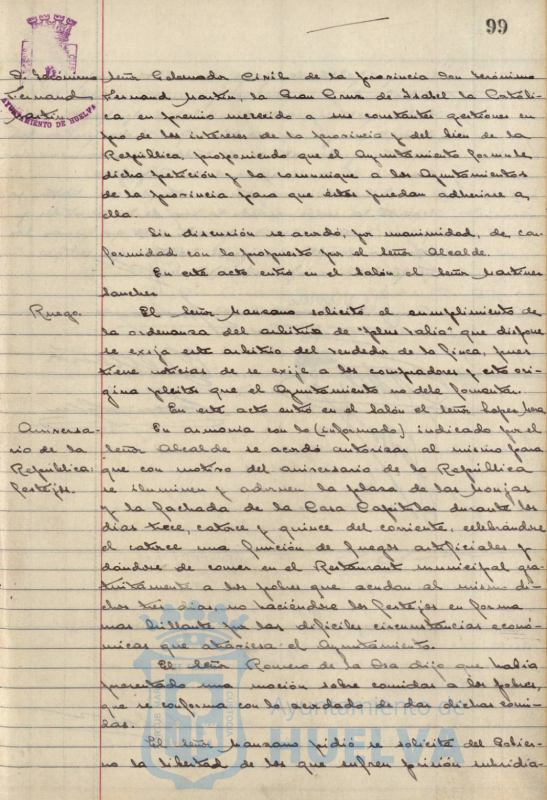 99
D. Jerónimo
Fernand
Martín
AYUNTAMIENTO DE HUELVA
Señor Gobernador Civil de la provincia Don Jerónimo
Fernand Martín, la Gran Cruz de Isabel la Católi-
ca en premio merecido a sus constantes gestiones en
pro de los intereses de la provincia y del bien de la
República, proponiendo que el Ayuntamiento formule
dicha petición y la comunique a los Ayuntamientos
de la provincia para que éstos puedan adherirse a
ella.
Sin discusión se acordó, por unanimidad, de con-
formidad con lo propuesto por el Señor Alcalde.
En este acto entró en el Salón el Señor Martínez
Sanchez
Ruego.
El Señor Manzano solicitó el cumplimiento de
la ordenanza del arbitrio de "plus valia" que dispone
se exija este arbitrio del vendedor de la finca, pues
tiene noticias de se exije a los compradores y esto ori-
gina pleitos que el Ayuntamiento no debe fomentar.
En este acto entró en el Salón el Señor Lopez
Aniversa-
rio de la
República:
Festejos.
En armonia con lo (informado) indicado por el
Señor Alcalde se acordó autorizar al mismo para
que con motivo del aniversario de la República
se iluminen y adornen la plaza de las Monjas
y la fachada de la Casa Capitular durante los
dias trece, catorce y quince del corriente, celebrándose
el catorce una función de fuegos artificiales y
dándose de comer en el Restaurant municipal gra-
tuitamente a los pobres que acudan al mismo di-
chos tres dias, no haciéndose los festejos en forma
mas brillante por las dificiles circunstancias econó-
micas que atraviesa el Ayuntamiento.
El Señor Romero de la Osa dijo que habia
presentado una moción sobre comidas a los pobres,
que se conforma con lo acordado de dar dichas comi-
das.
El Señor Manzano pidió se solicite del Gobier-
no la libertad de los que sufren prisión subsidia-
Ayuntamiento de
HUELVA